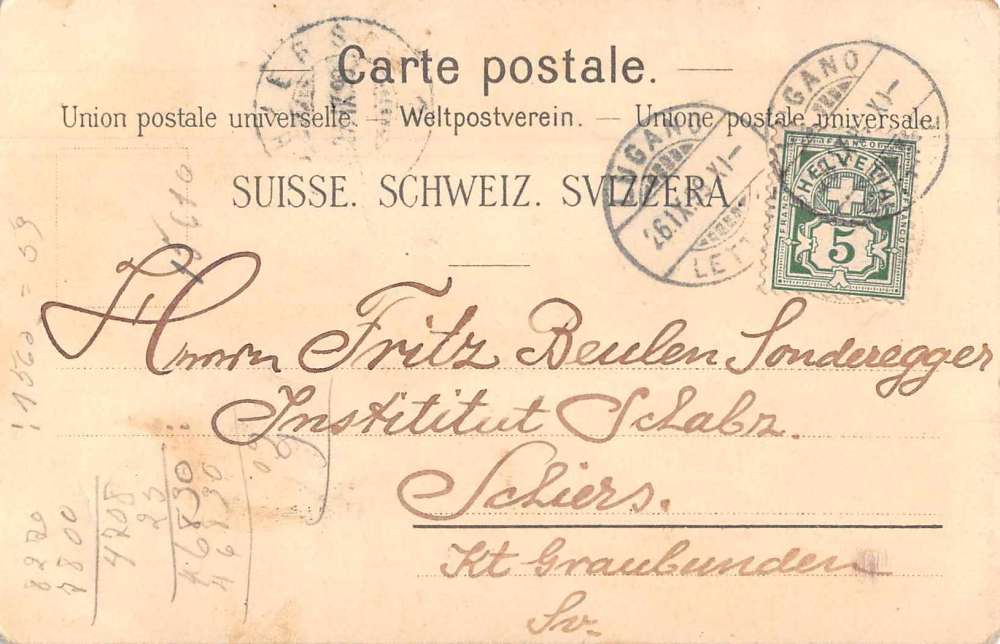 Carte postale.
Union postale universelle. — Weltpostverein. — Unione postale universale.
SUISSE. SCHWEIZ. SVIZZERA.
LUGANO
LUGANO
LETT
26.IX.
XI
FRANCO
HELVETIA
5
Herrn Fritz Beulen Sonderegger
Instititut Schabz.
Schiers.
Kt Graubunden
Sv.
1560 = 39
8220
7800
4208
23
46830